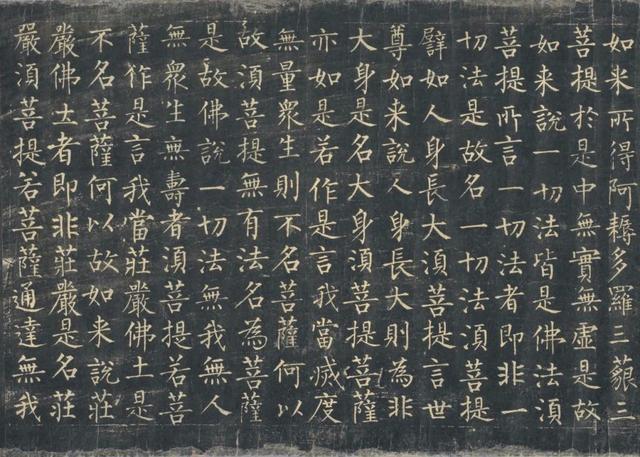 如来所得阿耨多羅三藐三
菩提於是中無實無虛是故
如来說一切法皆是佛法須
菩提所言一切法者即非一
切法是故名一切法須菩提
譬如人身長大須菩提言世
尊如来說人身長大則為非
大身是名大身須菩提菩薩
亦如是若作是言我當滅度
無量衆生則不名菩薩何以
故須菩提無有法名為菩薩
是故佛說一切法無我無人
無衆生無壽者須菩提若菩
薩作是言我當莊嚴佛土是
不名菩薩何以故如来說莊
嚴佛土者即非莊嚴是名莊
嚴須菩提若菩薩通達無我